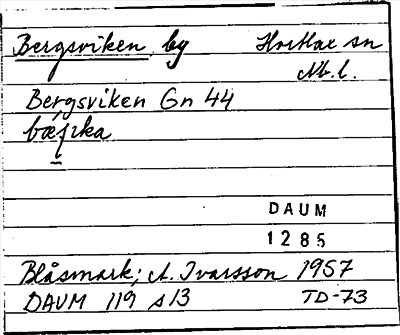 Bergsviken, by Hortlax sn
Nb. l.
Bergsviken Gn 44
DAUM
1285
Blåsmark; A. Ivarsson 1957
DAUM 119 s 13 TD-73